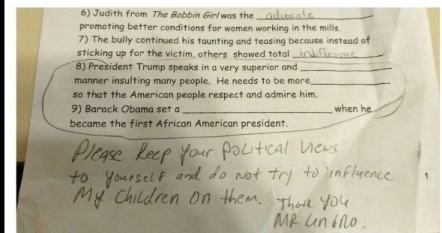 6) Judith from The Bobbin Girl was the advocate
promoting better conditions for women working in the mills.
7) The bully continued his taunting and teasing because instead of
sticking up for the victim, others showed total indifference
8) President Trump speaks in a very superior and
manner insulting many people. He needs to be more
so that the American people respect and admire him.
9) Barack Obama set a when he
became the first African American president.
Please keep your political views
to yourself and do not try to influence
My children on them. Thank you
MR